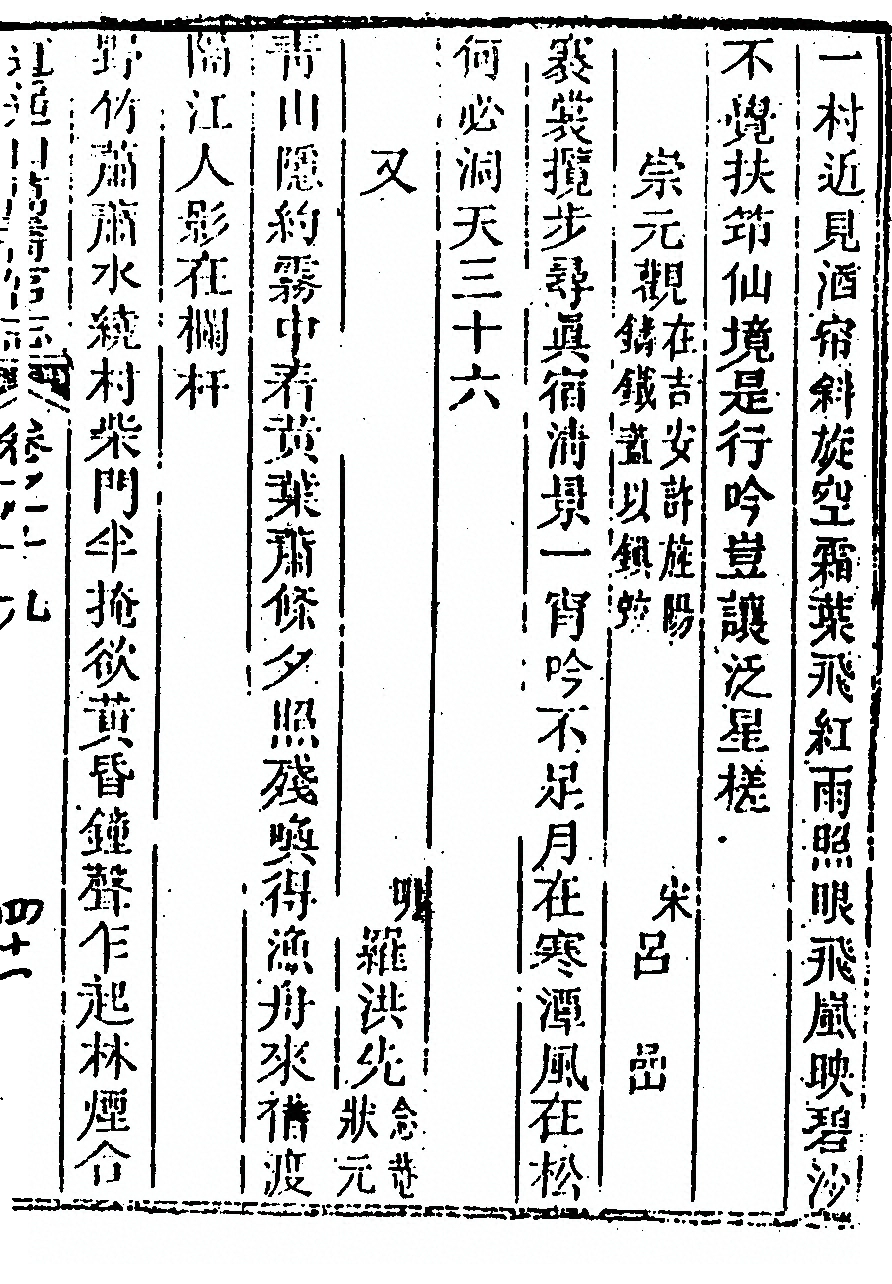 一村近見酒帘斜旋空霜葉飛紅雨照眼飛嵐映碧沙
不覺扶筇仙境是行吟豈讓泛星槎
崇元觀在吉安許旌陽鑄鐵蓋以鎮蛟 宋呂嵒
褰裳攬步尋眞宿淸景一宵吟不足月在寒潭風在松
何必洞天三十六
又 明羅洪先念菴狀元
靑山隱約霧中看黃葉蕭條夕照殘喚得漁舟來借渡
隔江人影在欄杆
野竹蕭蕭水繞村柴門半掩欲黃昏鐘聲乍起林煙合
逍遙山萬壽宮志 卷之十九 四十一